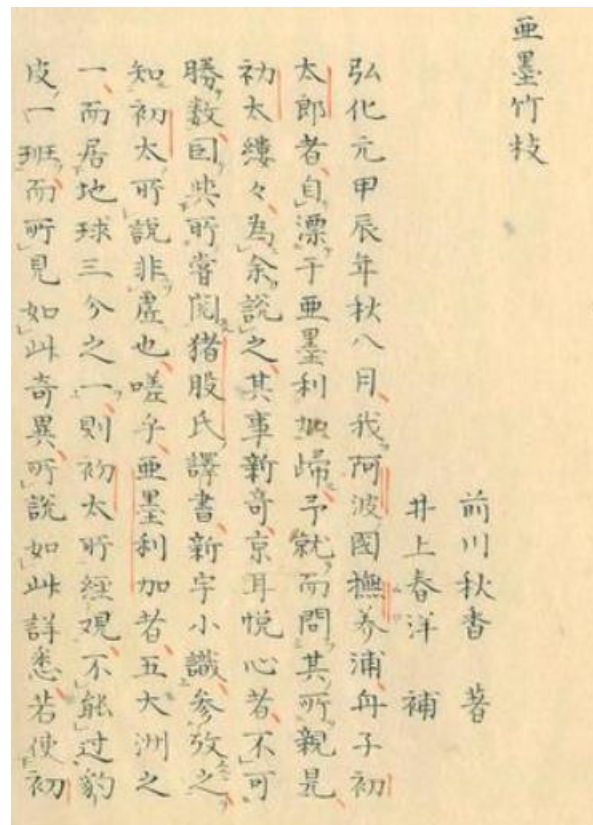 亜墨竹枝
前川秋香 著
井上春洋 補
弘化元甲辰年秋八月我阿波國撫养浦舟子初
太郎者自漂于亜墨利加歸予就而問其所親見
初太縷々為余説之其事新奇京耳悦心者不可
勝数囙典所嘗閲猪股氏譯書新宇小識参攷之
知初太所説非虚也嗟乎亜墨利加者五大洲之
一而居地球三分之一則初太所経観不能过豹
皮一班而所見如此奇異所説如此詳悉若使初